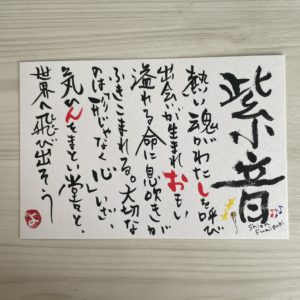 紫音
Shion Fumizuki
熱い魂がわたしを呼び
出会が生まれおもい
溢れる命に息吹きが
ふきこまれる。大切な
のは形じゃなく「心」いざ、
気ひんをまとい堂々と、
世界へ飛び出そう
よ